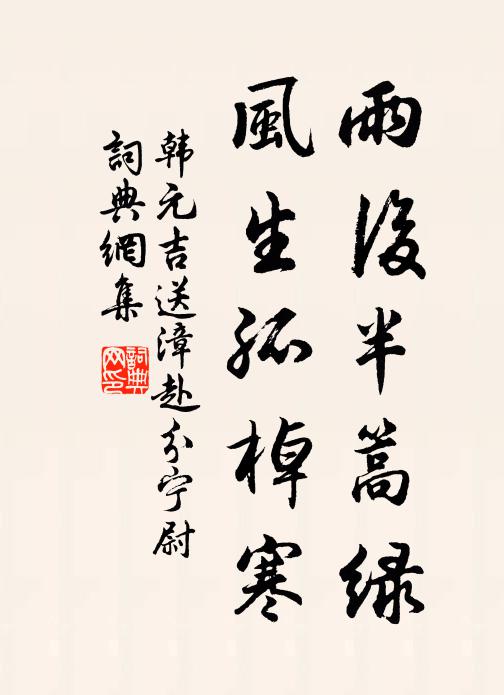 雨後半篙緑
風生孤棹寒
韩元吉送漳赴分宁尉
詞典網集
詞典网印